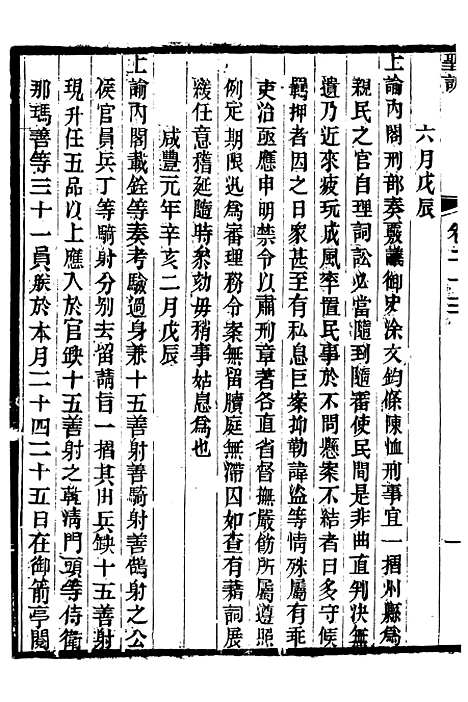 聖訓
卷二十三
一
六月戊辰
上諭內閣刑部奏覆議御史涂文鈞條陳恤刑事宜一摺州縣爲
親民之官自理詞訟必當隨到隨審使民間是非曲直判決無
遺乃近來疲玩成風率置民事於不問懸案不結者日多守候
羈押者因之日衆甚至有私息巨案抑勒諱盜等情殊屬有乖
吏治亟應申明禁令以肅刑章著各直省督撫嚴飭所屬遵照
例定期限迅爲審理務令案無留牘庭無滯囚如查有藉詞展
緩任意稽延隨時參劾毋稍事姑息爲也
咸豐元年辛亥二月戊辰
上諭內閣載銓等奏考驗過身兼十五善射善騎射善鵠射之公
侯官員兵丁等騎射分別去留請旨一摺其由兵缺十五善射
現升任五品以上應入於官缺十五善射之乾清門頭等侍衛
那瑪善等三十一員候於本月二十四二十五日在御箭亭閱